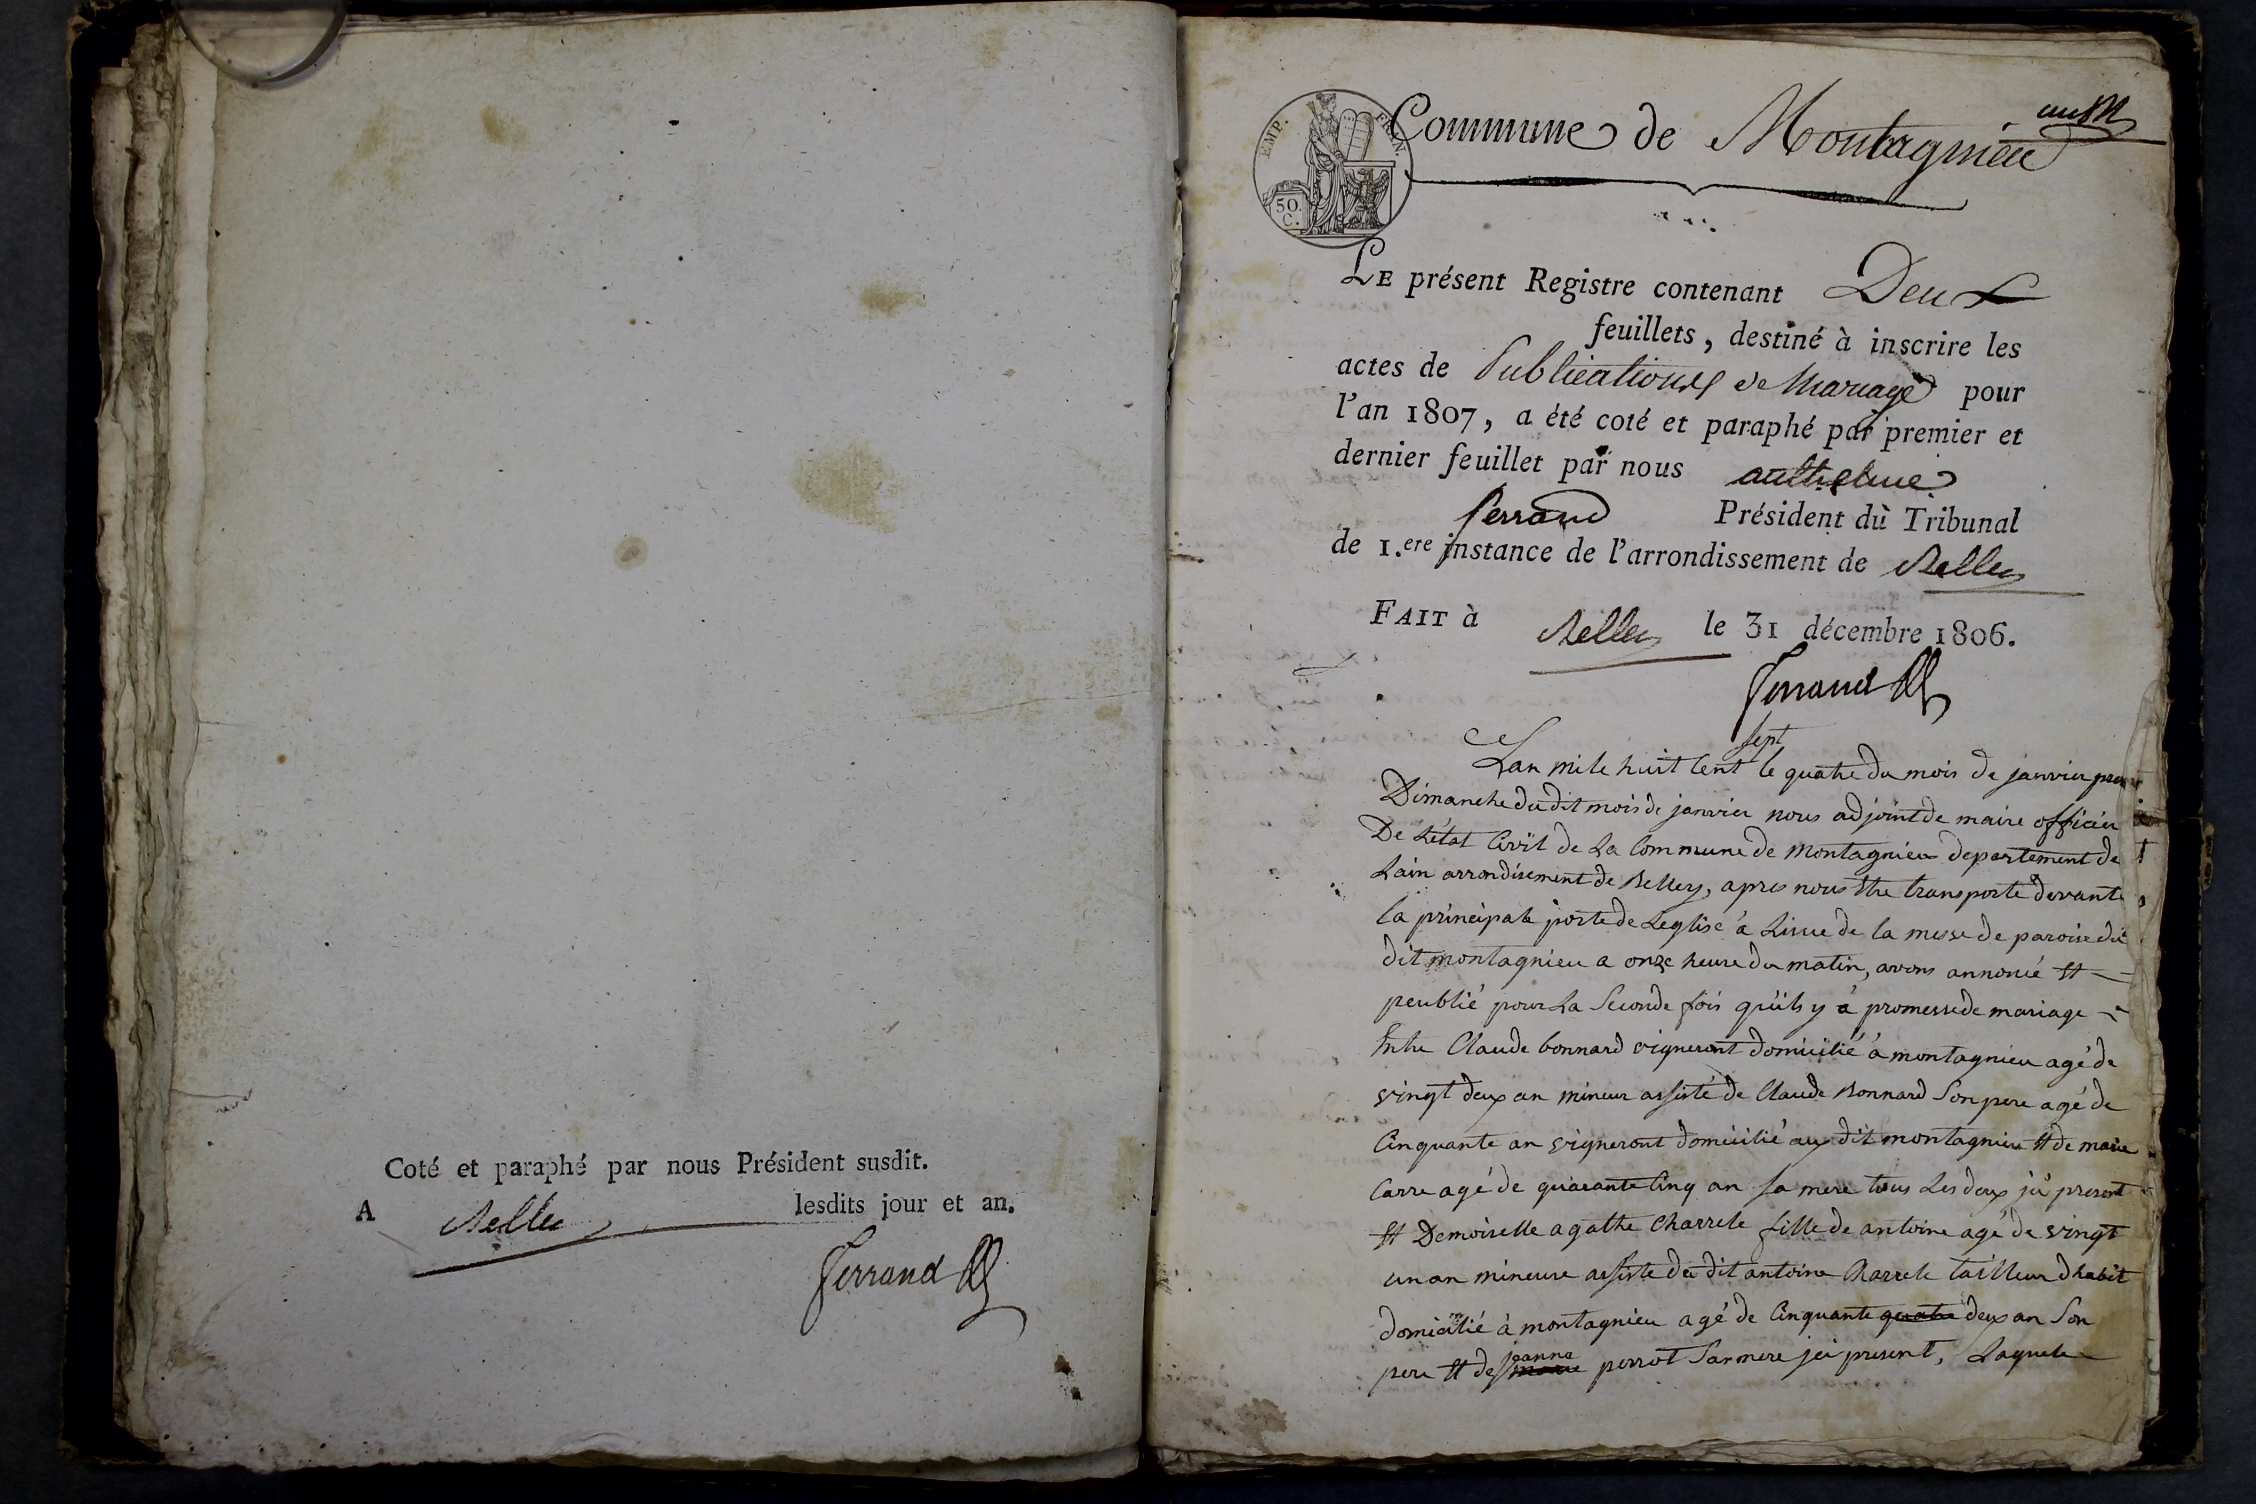 Coté et paraphé par nous Président susdit.
A Belley lesdits jour et an.
Ferrand
EMP. FRAN.
50.
C.
Commune de Montagnieu
Le présent Registre contenant Deux
feuillets, destiné à inscrire les
actes de Publications de Mariage pour
l'an 1807, a été coté et paraphé par premier et
dernier feuillet par nous anthelme
ferrand Président du Tribunal
de 1.ere instance de l'arrondissement de Belley
FAIT à Belley le 31 décembre 1806.
Ferrand
sept
Lan mile huit Cent le quatre du mois de janvier premier
Dimanche du dit mois de janvier nous adjoint de maire officier
De L'état Civil de La Commune de Montagnieu departement de
Lain arrondisement de Belley, apres nous Etre transporte devant
la principale porte de Leglise à Lissue de la messe de paroise du
dit montagnieu a onze heure du matin, avons annoncé Et
peublié pour La Seconde fois quils y à promesse de mariage
Entre Claude bonnard vigneront domicilié à montagnieu agé de
vingt deux an mineur assisté de Claude Bonnard Son pere agé de
Cinquante an vigneront domicilié au dit montagnieu Et de marie
Carre agé de quarante Cinq an sa mere tous Les deux ici present
Et Demoiselle agathe Charrele fille de antoine agé de vingt
un an mineure assiste du dit antoine Charrele tailleur dhabit
domicilié à montagnieu agé de Cinquante quatre deux an Son
jeanne
pere Et de marie perrot Sa mere ici present, Laquele